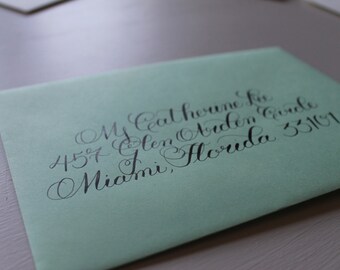 Ms Catherine Lee
457 Glen Arden Circle
Miami, Florida 33101